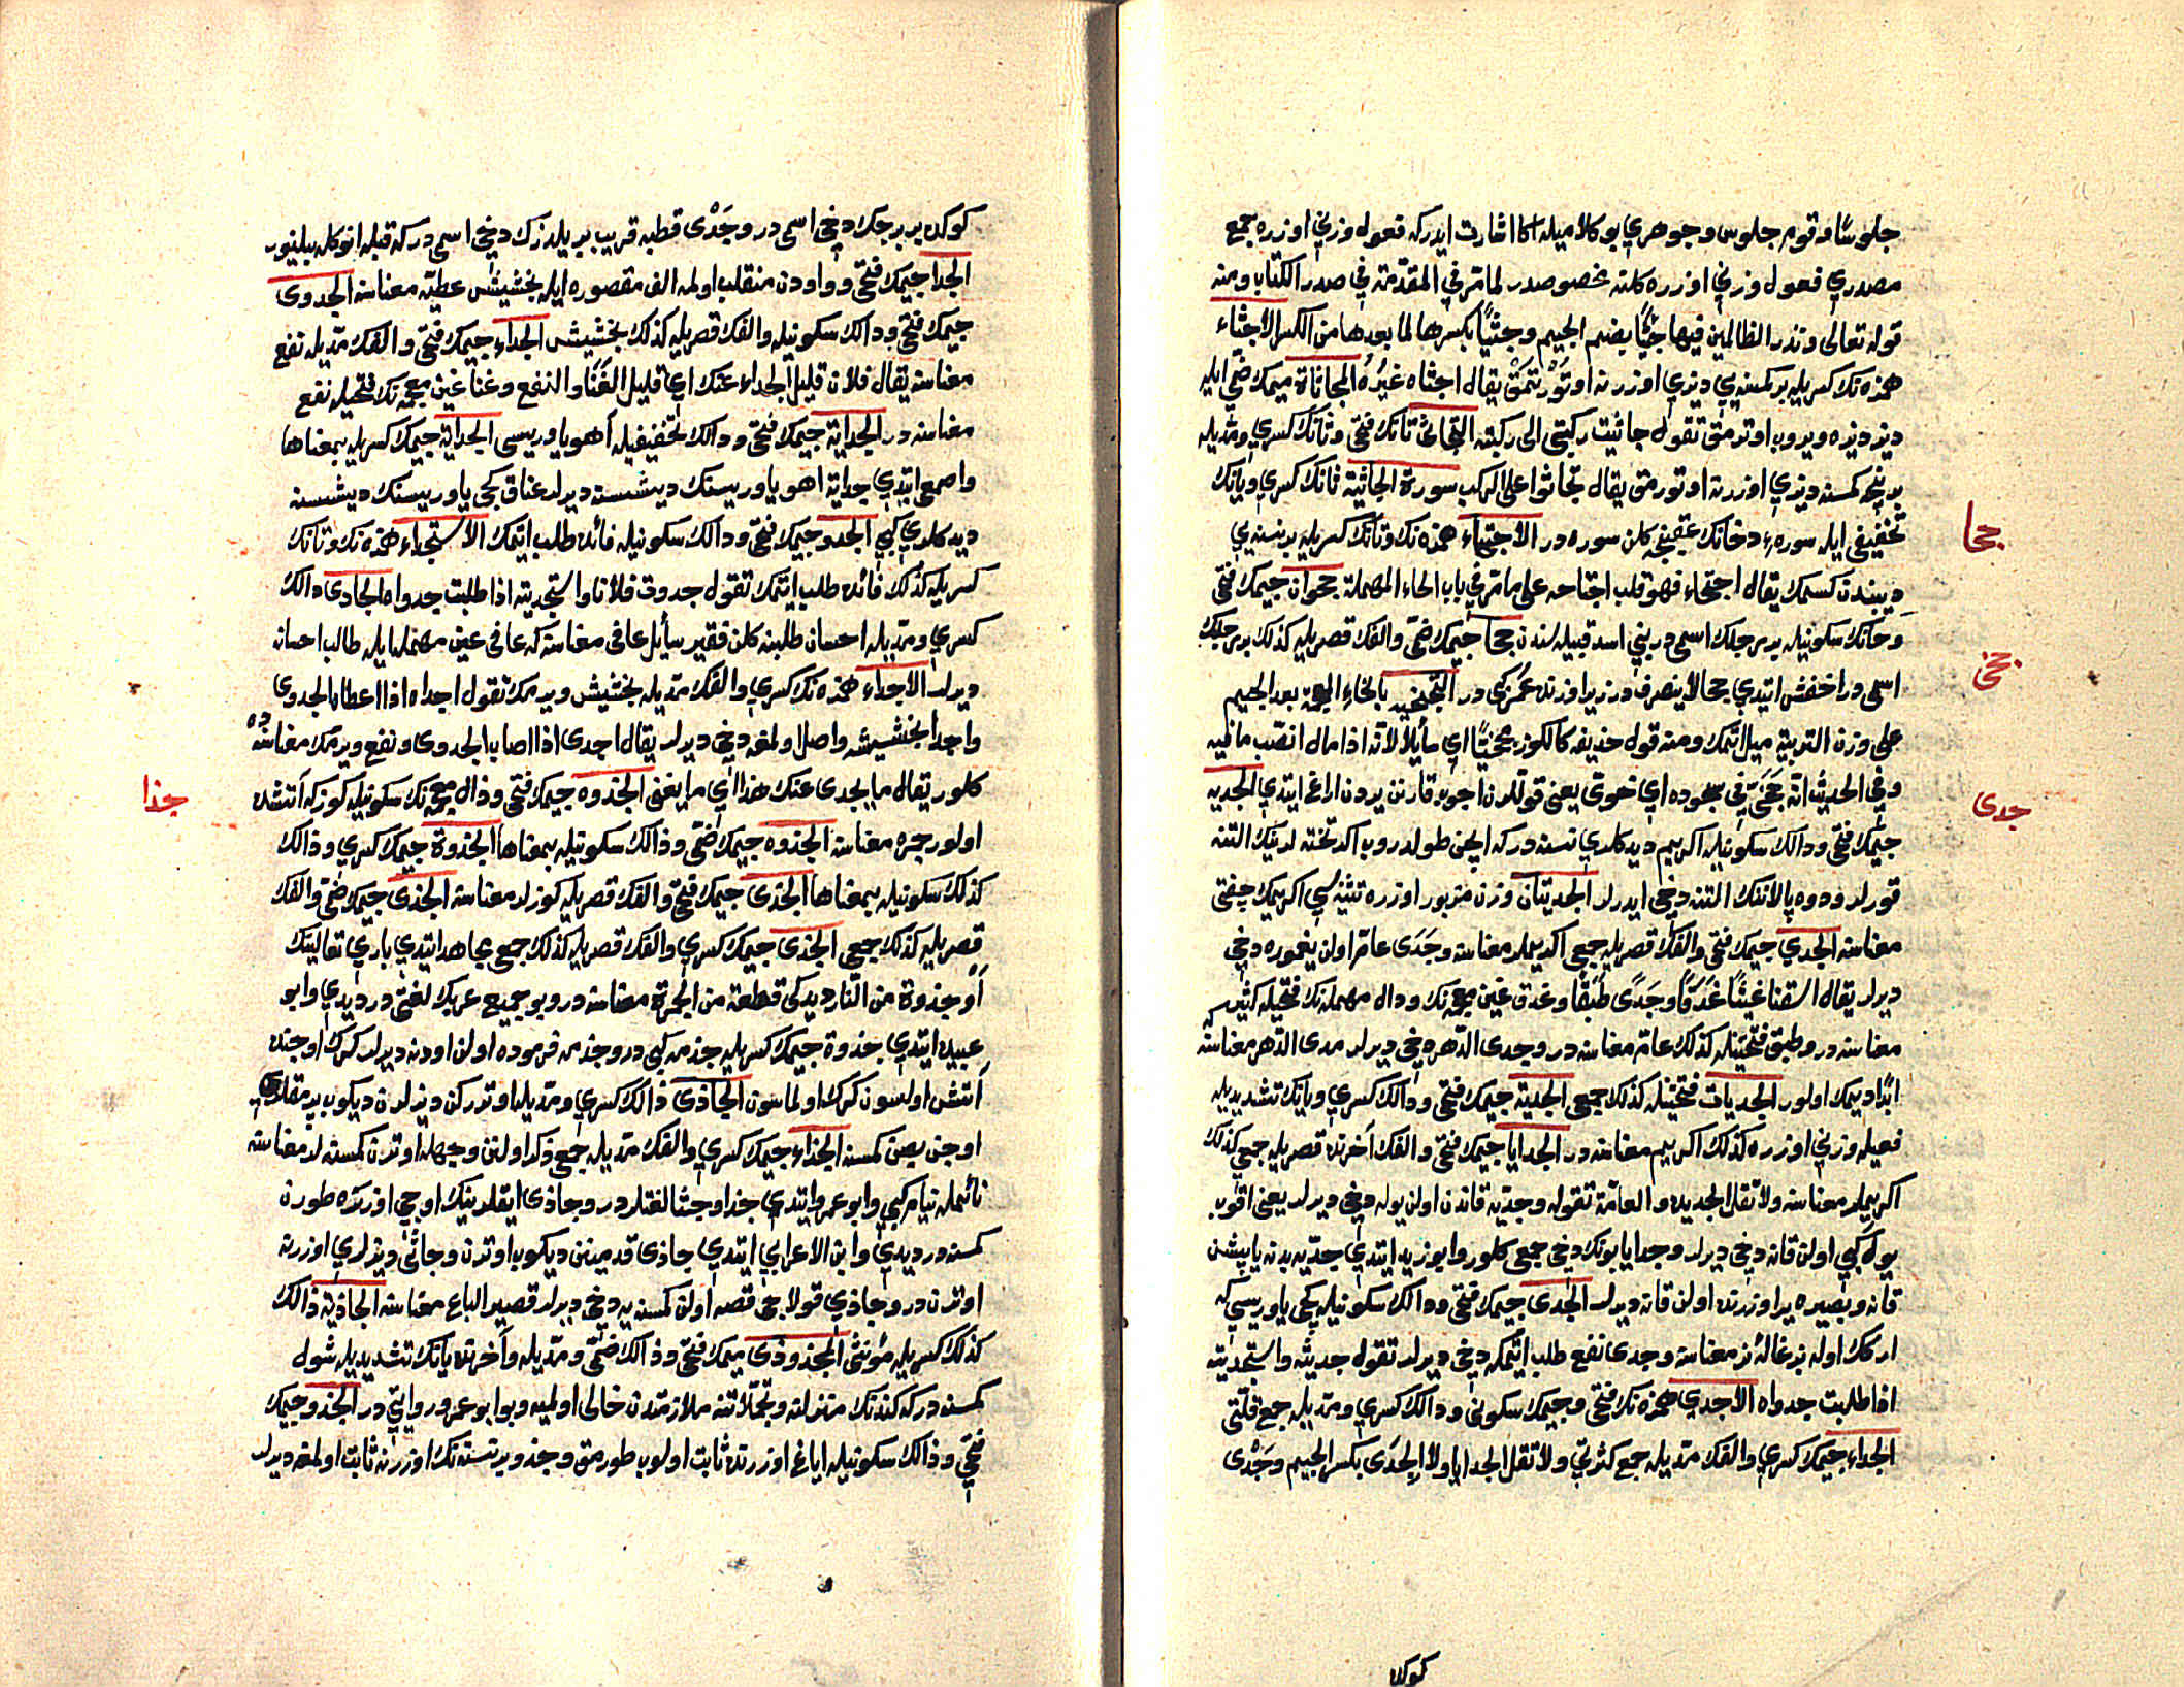 جلوسًا وقوم جلوس وجوهري بو كلاميله اكا اشارت ايدركه فعول وزني اوزره جمع
مصدري فعول وزني اوزره كلنه مخصوصدر لما مرّ في المقدّمة في صدر الكتاب ومنه
قوله تعالى ونذر الظالمين فيها جثيًّا بضم الجيم وجثيًّا بكسرها لما بعدها من الكسر الاجثاء
همزه نك كسريله بر كمسنه يي ديزي اوزرنه اوتورتمق يقال اجثاه غيرُهُ المجاثاة ميمك ضمّي ايله
ديز ديزه ويروب اوترمق تقول جاثيت ركبتي الى ركبته التجاثي تانك فتحي وثانك كسري ومدّيله
بر نيچه كمسنه ديزي اوزرنه اوتورمق يقال تجاثوا على الركب سورة الجاثية ثانك كسري ويانك
تخفيفي ايله سوره دخانك عقبنجه كلن سوره در الاجتحاء همزه نك وتانك كسريله بر نسنه يي
ديبندن كسمك يقال اجتحاه فهو قلب اجتاحه على ما مرّ في باب الحاء المهملة جحوان جيمك فتحي
وحانك سكونيله بر رجلك اسمي در بني اسد قبيله سندن جحا جيمك ضمّي والفك قصريله كذلك بر رجلك
اسمي در اخفش ايتدي جحا لا ينصرف در زيرا وزنده عُمَر كبي در التجخية بالخاء المعجمة بعد الجيم
على وزن التربية ميل اتمك ومنه قول حذيفه كالكوز مجخّيًا اي مائلًا لانّه اذا مال انصبّ ما فيه
وفي الحديث انّه جخّى في سجوده اي خوّى يعني قوللرن اچوب قارنن يردن اراغ ايتدي الجدية
جيمك فتحي ودالك سكونيله اكر يم ديد كلري نسنه در كه ايچن طولدروب اكر تخته لرينك التنه
قورلر ودوه پالاننك التنه دخي ايدرلر الجديتان وزن مزبور اوزره تثنيه سي اكر يمك چفتي
معناسنه الجدى جيمك فتحي والفك قصريله جمعي اكر يملر معناسنه وجَدَى عامّ اولن يغموره دخي
ديرلر يقال اسقنا غيثًا غَدَقًا وجَدًى طَبَقًا وغدق غين معجمه نك ودال مهمله نك فتحيله كثير
معناسنه در وطبق فتحتينله كذلك عامّ معناسنه در وجدى الدّهر دخي ديرلر مدى الدّهر معناسنه كه
ابدًا ديمك اولور الجديات فتحتينله كذلك جمعي الجدية جيمك فتحي ودالك كسري ويانك تشديديله
فعيله وزني اوزره كذلك اكر يم معناسنه در الجدايا جيمك فتحي والفك آخرنده قصريله جمعي كذلك
اكر يملر معناسنه ولا تقل الجديده والعامّة تقوله وجديّه قاندن اولن يوله دخي ديرلر يعني اقوب
يول كبي اولن قانه دخي ديرلر وجدايا بونك دخي جمعي كلور وابو زيد ايتدي جديّه بدنه ياپشن
قانه وبصيره ير اوزرنده اولن قانه ديرلر الجدى جيمك فتحي ودالك سكونيله كچي ياوريسي كه
اركك اوله بزغاله نر معناسنه وجدى نفع طلب ايتمكه دخي ديرلر تقول جديته واستجديته
اذا طلبت جدواه الاجدي همزه نك فتحي وجيمك سكوني ودالك كسري ومدّيله جمع قلّتي
الجداء جيمك كسري والفك مدّيله جمع كثرتي ولا تقل الجدايا ولا الجِدَى بكسر الجيم وجَدْى
جحا
جخى
جدى
كوكده
كوكده بر برجك دخي اسمي در وجَدْى قطبه قريب بر يلدزك دخي اسمي در كه قبله انوكله بيلنور
الجدا جيمك فتحي وواودن منقلب اولمه الف مقصوره ايله بخشيش عطيّه معناسنه الجدوى
جيمك فتحي ودالك سكونيله والفك قصريله كذلك بخشيش الجداء جيمك فتحي والفك مدّيله نفع
معناسنه يقال فلان قليل الجداء عنك اي قليل الغَنَاء والنفع وغنا غين معجمه نك فتحيله نفع
معناسنه در الجداية جيمك فتحي ودالك تخفيفيله آهو ياوريسي الجداية جيمك كسريله بمعناها
واصمعي ايتدي جداية اهو ياوريسنك ديشيسنه ديرلر عناق كچي ياوريسنك ديشيسنه
ديد كلري كبي الجدو جيمك فتحي ودالك سكونيله فائده طلب ايتمك الاستجداء همزه نك وتانك
كسريله كذلك فائده طلب ايتمك تقول جدوت فلانا واستجديته اذا طلبت جدواه الجادى دالك
كسري ومدّيله احسان طلبنه كلن فقير سائل عافى معناسنه كه عافى عين مهمله ايله طالب احسانه
ديرلر الاجداء همزه نك كسري والفك مدّيله بخشيش ويرمك تقول اجداه اذا اعطاه الجدوى
واجدا بخشيشه واصل اولمغه دخي ديرلر يقال اجدى اذا اصاب الجدوى ونفع ويرمك معناسنه ده
كلور يقال ما يجدى عنك هذا اي ما يغني الجذوه جيمك فتحي وذال معجمه نك سكونيله كوز كه آتشده
اولور جمره معناسنه الجذوه جيمك ضمّي وذالك سكونيله بمعناها الجذوة جيمك كسري وذالك
كذلك سكونيله بمعناها الجذى جيمك فتحي والفك قصريله كوزلر معناسنه الجذى جيمك ضمّي والفك
قصريله كذلك جمعي الجذى جيمك كسري والفك قصريله كذلك جمع مجاهد ايتدي باري تعالينك
أو جذوة من النّار ديدكي قطعة من الجمرة معناسنه در وبو جميع عربك لغتي در ديدي وابو
عبيده ايتدي جذوة جيمك كسريله جذمه كبي در وجذمه قرموده اولن اودنه ديرلر كرك اوجنده
آتش اولسون كرك اولماسون الجاذى ذالك كسري ومدّيله اوتركن ديزلرن ديكوب پرمقلري
اوجن بصن كمسنه الجذاء جيمك كسري والفك مدّيله جمع ذكر اولنن وجهله اوترن كمسنه لر معناسنه
نائمله نيام كبي وابو عمرو ايتدي جذا وجثا لغتلر در وجاذى اياقلرينك اوجي اوزرنده طورن
كمسنه در ديدي وابن الاعرابي ايتدي جاذى قدمينن ديكوب اوترن وجاثى ديزلري اوزرنه
اوترن در وجاذي قولاجي قصه اولن كمسنه يه دخي ديرلر قصير الباع معناسنه الجاذية ذالك
كذلك كسريله مؤنثي المجذوذى ميمك فتحي وذالك ضمّي ومدّيله وآخرنده يانك تشديديله شول
كمسنه در كه كندنك منزلنه وتحلّاتنه ملازمتدن خالى اولميه وبو ابو عمرو روايتي در الجذو جيمك
فتحي وذالك سكونيله اياغ اوزرنده ثابت اولوب طورمق وجذو بر نسنه نك اوزرنه ثابت اولمغه ديرلر
جذا